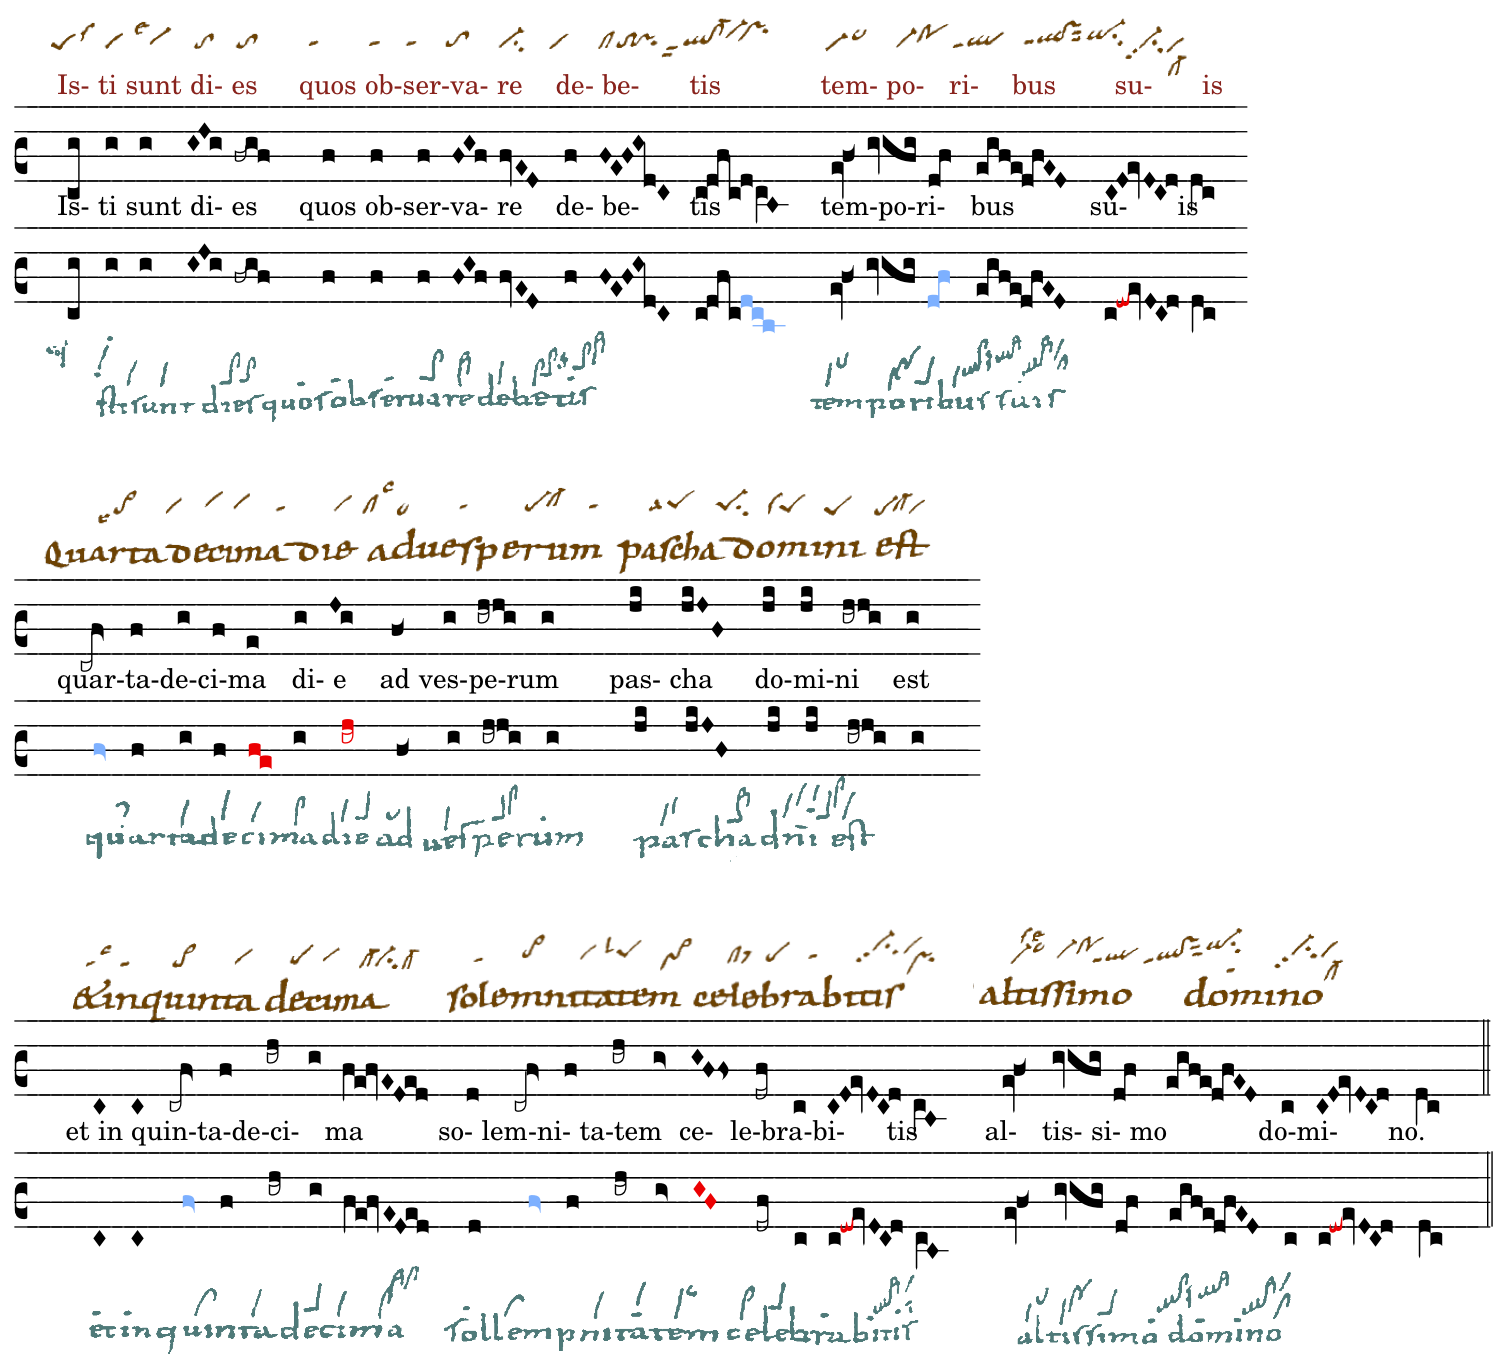 Is- ti sunt di- es quos ob-ser-va- re de- be- tis tem- po- ri- bus su- is
Is- ti sunt di- es quos ob-ser-va- re de- be- tis tem-po-ri- bus su- is
sti sunt dies quos obseruare debetis temporibus suis
Quarta decima die aduesperum pascha domini est
quar-ta-de-ci-ma di- e ad ves-pe-rum pas- cha do-mi-ni est
quarta decima die ad uesperum pascha dni est
&inquinta decima solemnitatem celebrabitis altissimo domino
et in quin-ta-de-ci- ma so- lem-ni- ta-tem ce- le-bra-bi- tis al- tis- si- mo do-mi- no.
et in quinta decima sollempnitatem celebrabitis altissimo domino